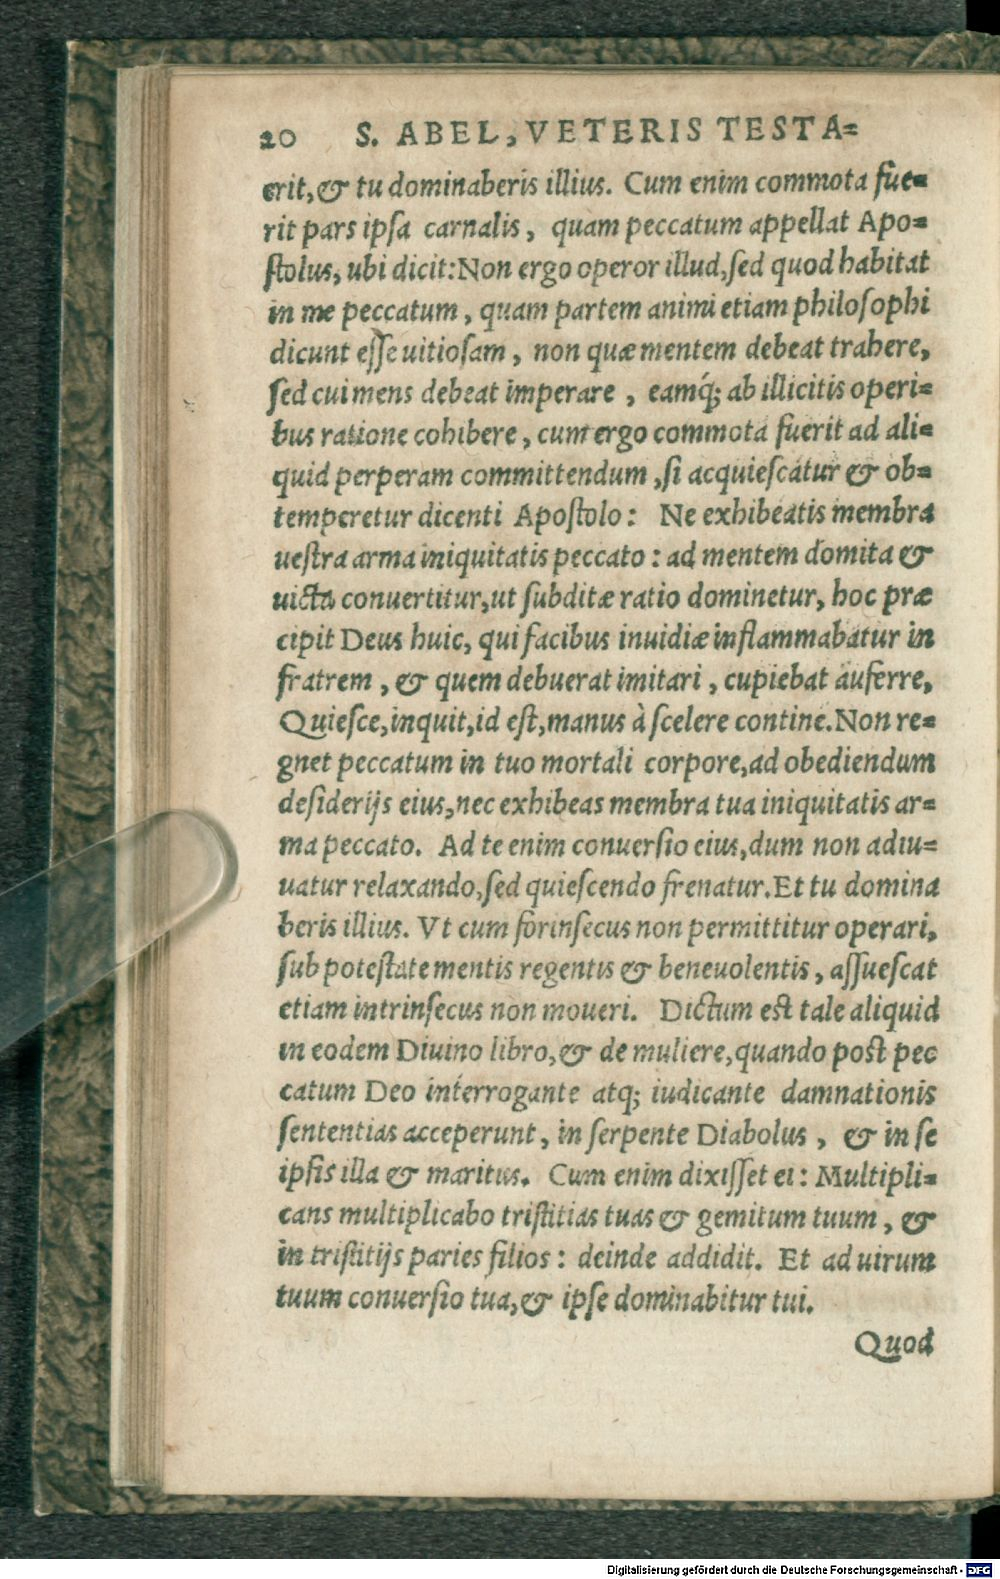 20 S. ABEL, VETERIS TESTA=
erit, & tu dominaberis illius. Cum enim commota fue=
rit pars ipſa carnalis, quam peccatum appellat Apo=
ſtolus, ubi dicit: Non ergo operor illud, ſed quod habitat
in me peccatum, quam partem animi etiam philoſophi
dicunt eſſe uitioſam, non quæ mentem debeat trahere,
ſed cui mens debeat imperare, eamq́; ab illicitis operi=
bus ratione cohibere, cum ergo commota fuerit ad ali=
quid perperam committendum, ſi acquieſcatur & ob=
temperetur dicenti Apoſtolo: Ne exhibeatis membra
ueſtra arma iniquitatis peccato: ad mentem domita &
uicta conuertitur, ut ſubditæ ratio dominetur, hoc præ
cipit Deus huic, qui facibus inuidiæ inflammabatur in
fratrem, & quem debuerat imitari, cupiebat auferre,
Quieſce, inquit, id eſt, manus à ſcelere contine. Non re=
gnet peccatum in tuo mortali corpore, ad obediendum
deſiderijs eius, nec exhibeas membra tua iniquitatis ar=
ma peccato. Ad te enim conuerſio eius, dum non adiu=
uatur relaxando, ſed quieſcendo frenatur. Et tu domina
beris illius. Vt cum forinſecus non permittitur operari,
ſub poteſtate mentis regentis & beneuolentis, aſſueſcat
etiam intrinſecus non moueri. Dictum est tale aliquid
in eodem Diuino libro, & de muliere, quando post pec
catum Deo interrogante atq; iudicante damnationis
ſententias acceperunt, in ſerpente Diabolus, & in ſe
ipſis illa & maritus. Cum enim dixiſſet ei: Multipli=
cans multiplicabo triſtitias tuas & gemitum tuum, &
in triſtitijs paries filios: deinde addidit. Et ad uirum
tuum conuerſio tua, & ipſe dominabitur tui.
Quod
Digitalisierung gefördert durch die Deutsche Forschungsgemeinschaft - DFG